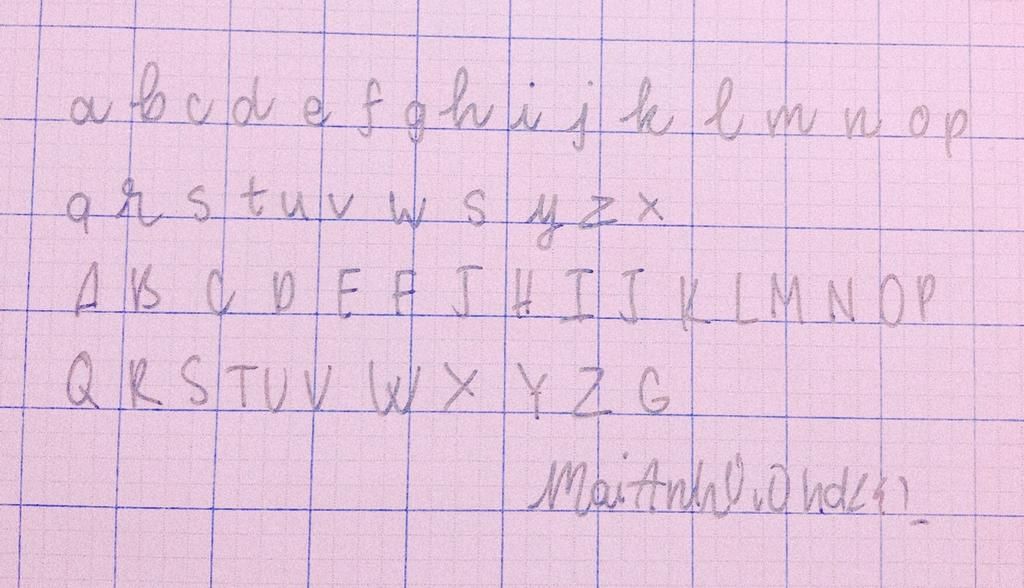 a b c d e f g h i j k l m n o p
q r s t u v w s y z x
A B C D E F J H I J K L M N O P
Q R S T U V W X Y Z G
MaiAnh